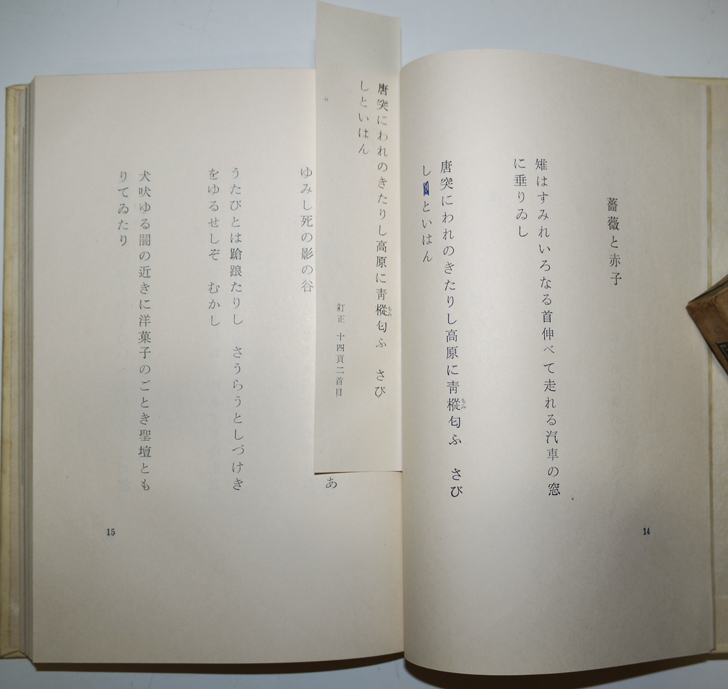 薔薇と赤子
雉はすみれいろなる首伸べて走れる汽車の窓
に垂りゐし
唐突にわれのきたりし高原に靑樅匂ふ　さび
もみ
し といはん
14
唐突にわれのきたりし高原に靑樅匂ふ　さび
もみ
しといはん
訂正　十四頁二首目
あ
ゆみし死の影の谷
うたびとは蹌踉たりし　さうらうとしづけき
をゆるせしぞ　むかし
犬吠ゆる闇の近きに洋菓子のごとき聖壇とも
りてゐたり
15